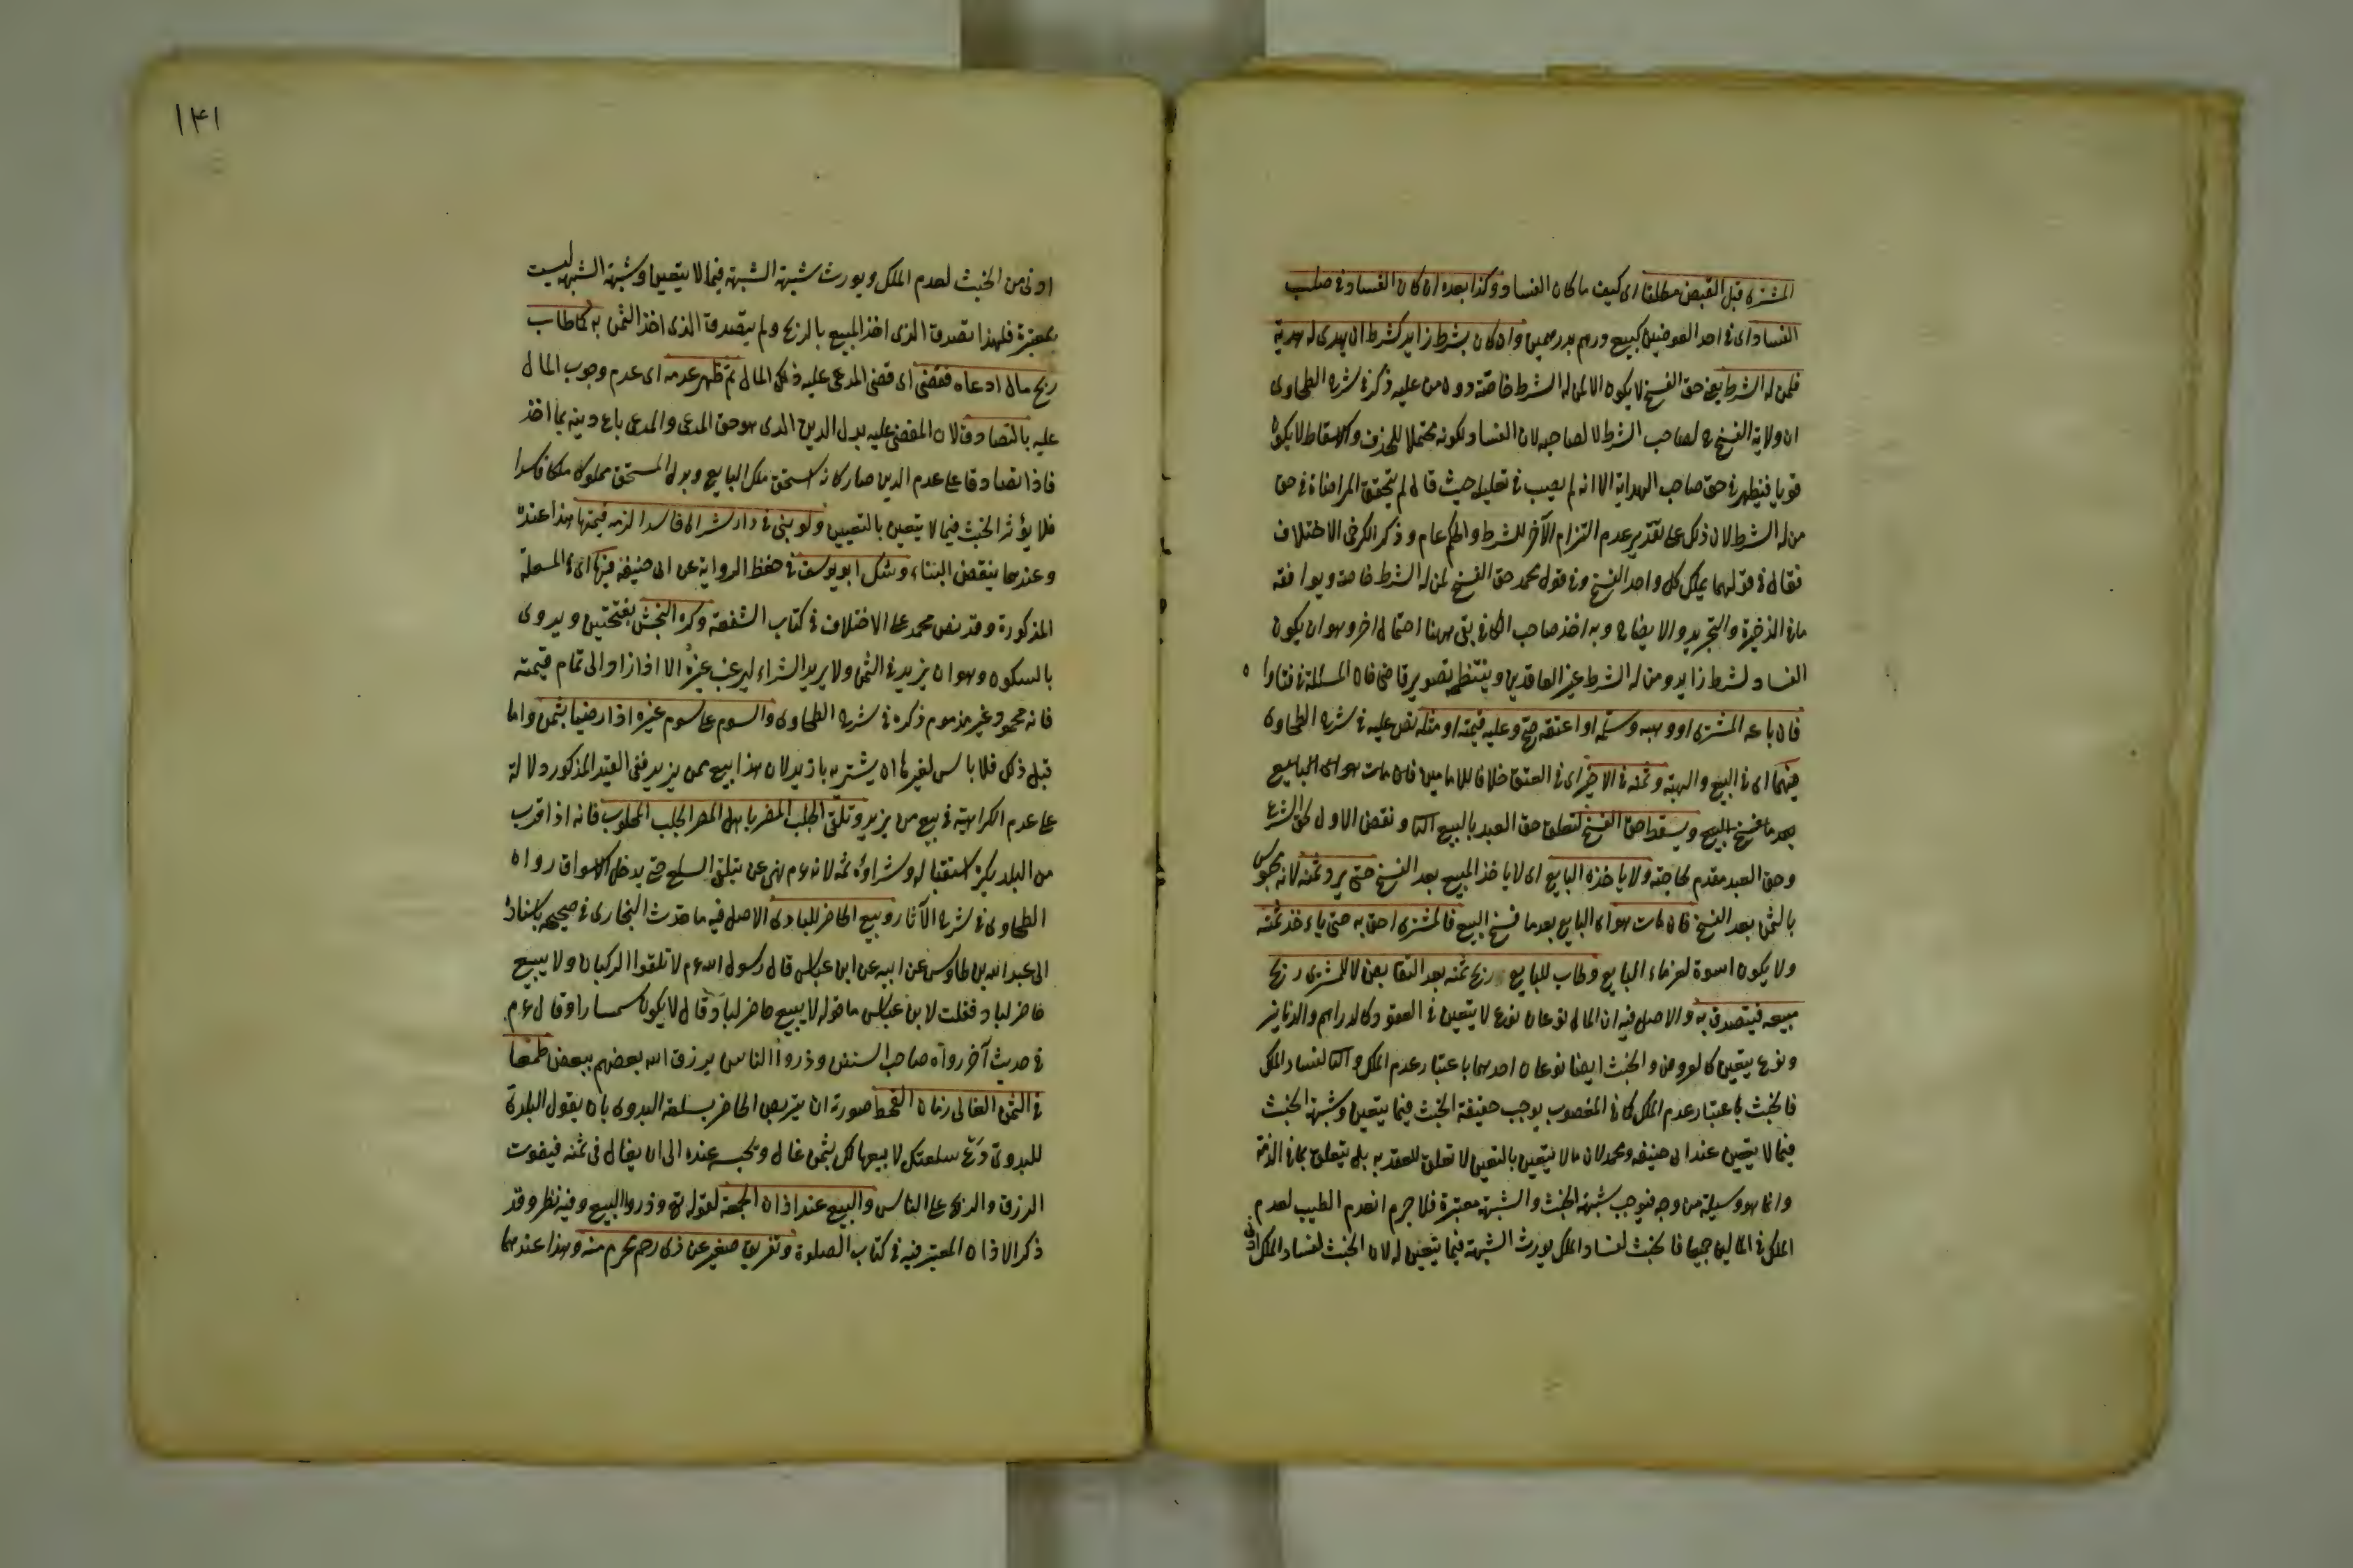 المشترى قبل القبض مطلقا اى كيف ما كان الفساد وكذا بعده ان كان الفساد فى صلب
الفساد اى فى احد العوضين كبيع درهم بدرهمين وان كان بشرط زايد كشرط ان يهدى له هدية
فلمن له الشرط يعنى حق الفسخ لا يكون الا لمن له الشرط خاصة دون من عليه ذكره فى شرح الطحاوى
ان ولاية الفسخ ح لصاحب الشرط لا لصاحبه لان الفساد لكونه محتملا للحذف والاسقاط لا يكون
قويا فيظهر فى حق صاحب الهداية الا انه لم يصب فى تعليله حيث قال لم يتحقق المراضاة فى حق
من له الشرط لان ذلك على تقدير عدم التزام الآخر للشرط والحكم عام وذكر الكرخى الاختلاف
فقال فى قولهما يملك كل واحد الفسخ وفى قول محمد حق الفسخ لمن له الشرط خاصة ويوافقه
ما فى الذخيرة والتجريد والايضاح وبه اخذ صاحب الكافى بقى ههنا احتمال اخر وهو ان يكون
الفساد لشرط زايد ومن له الشرط غير العاقدين وينتظم تصوير قاضى خان المسئلة فى فتاواه
فان باعه المشترى او وهبه وسلمه او اعتقه صح وعليه قيمته او مثله نص عليه فى شرح الطحاوى
فيهما اى فى البيع والهبة وثمنه فى الاخير اى فى العتق خلافا للامامين فان مات هو اى البايع
بعد ما فسخ البيع ويسقط حق الفسخ لتعلق حق العبد بالبيع الثانى ونقض الاول لحق الشرع
وحق العبد مقدم لحاجته ولا ياخذه البايع اى لا ياخذ المبيع بعد الفسخ حتى يرد ثمنه لانه محبوس
بالثمن بعد الفسخ فان مات هو اى البايع بعد ما فسخ البيع فالمشترى احق به حتى ياءخذ ثمنه
ولا يكون اسوة لغرماء البايع وطاب للبايع ربح ثمنه بعد التقابض لا للمشترى ربح
مبيعه فيتصدق به والاصل فيه ان المال نوعان نوع لا يتعين فى العقود كالدراهم والدنانير
ونوع يتعين كالعروض والخبث ايضا نوعان احدهما باعتبار عدم الملك والثانى لفساد الملك
فالخبث باعتبار عدم الملك كما فى المغصوب يوجب حقيقة الخبث فيما يتعين وشبهة الخبث
فيما لا يتعين عند ابى حنيفه ومحمد لان ما لا يتعين بالتعين لا تعلق للعقد به بل يتعلق بما فى الذمة
وانما هو وسيلة من وجه فيوجب شبهة الخبث والشبهة معتبرة فلا جرم انعدم الطيب لعدم
الملك فى المالين جميعا فالخبث لفساد الملك يورث الشبهة فيما يتعين له لان الخبث لفساد الملك ادنى
ادنى من الخبث لعدم الملك ويورث شبهة الشبهة فيما لا يتعين وشبهة الشبهة ليست
بمعتبرة فلهذا تصدق الذى اخذ المبيع بالربح ولم يتصدق الذى اخذ الثمن به كما طاب
ربح مال ادعاه فقضى اى قضى المدعى عليه ذلك المال ثم ظهر عدمه اى عدم وجوب المال
عليه بالتصادق لان المقضى عليه بدل الدين الذى هو حق المدعى والمدعى باع دينه بما اخذ
فاذا تصادقا على عدم الدين صار كانه استحق ملك البايع وبدل المستحق مملوك ملكا فاسدا
فلا يؤثر الخبث فيما لا يتعين بالتعيين ولو بنى فى دار شراها فاسدا لزمه قيمتها هذا عنده
وعندهما ينقض البناء وشك ابو يوسف فى حفظ الرواية عن ابى حنيفه فيها اى فى المسئلة
المذكورة وقد نص محمد على الاختلاف فى كتاب الشفعة وكره النجش بفتحتين ويروى
بالسكون وهو ان يزيد فى الثمن ولا يريد الشراء ليرغب غيره الا اذا زاد الى تمام قيمته
فانه محمود غير مذموم ذكره فى شرح الطحاوى والسوم على سوم غيره اذا رضيا بثمن واما
قبل ذلك فلا باس لغيرها ان يشتريه بازيد لان هذا بيع من يزيد ففى القيد المذكور دلالة
على عدم الكراهية فى بيع من يزيد وتلقى الجلب المضر باهل المصر الجلب المجلوب فانه اذا قرب
من البلد يكره استقباله وشراؤه ثمه لانه ءم نهى عن تلقى السلع حتى يدخل الاسواق رواه
الطحاوى فى شرح الآثار وبيع الحاضر للبادى الاصل فيه ما حدث البخارى فى صحيحه باسناده
الى عبد الله بن طاوس عن ابيه عن ابن عباس قال رسول الله ءم لا تلقوا الركبان ولا يبيع
حاضر لباد فقلت لابن عباس ما قوله لا يبيع حاضر لباد قال لا يكون سمسارا وقال ءم
فى حديث آخر رواه صاحب السنن وذروا الناس يرزق الله بعضهم ببعض طمعا
فى الثمن الغالى زمان القحط صورته ان يتربص الحاضر بسلعة البدوى بان يقول البلدى
للبدوى دع سلعتك لابيعها لك بثمن غال ويحبسه عنده الى ان يغال فى ثمنه فيفوت
الرزق والربح على الناس والبيع عند اذان الجمعة لقوله تع وذروا البيع وفيه نظر وقد
ذكر الاذان المعتبر فيه فى كتاب الصلوة وتفريق صغير عن ذى رحم محرم منه وهذا عندهما
۱۴۱